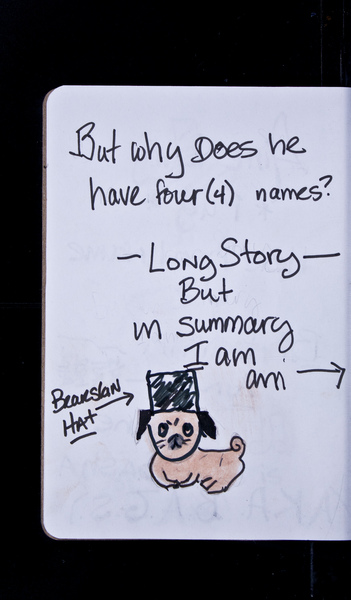 But why Does he
have four (4) names?
- Long Story -
But
in summary
I am
am →
Bearskin
HAT